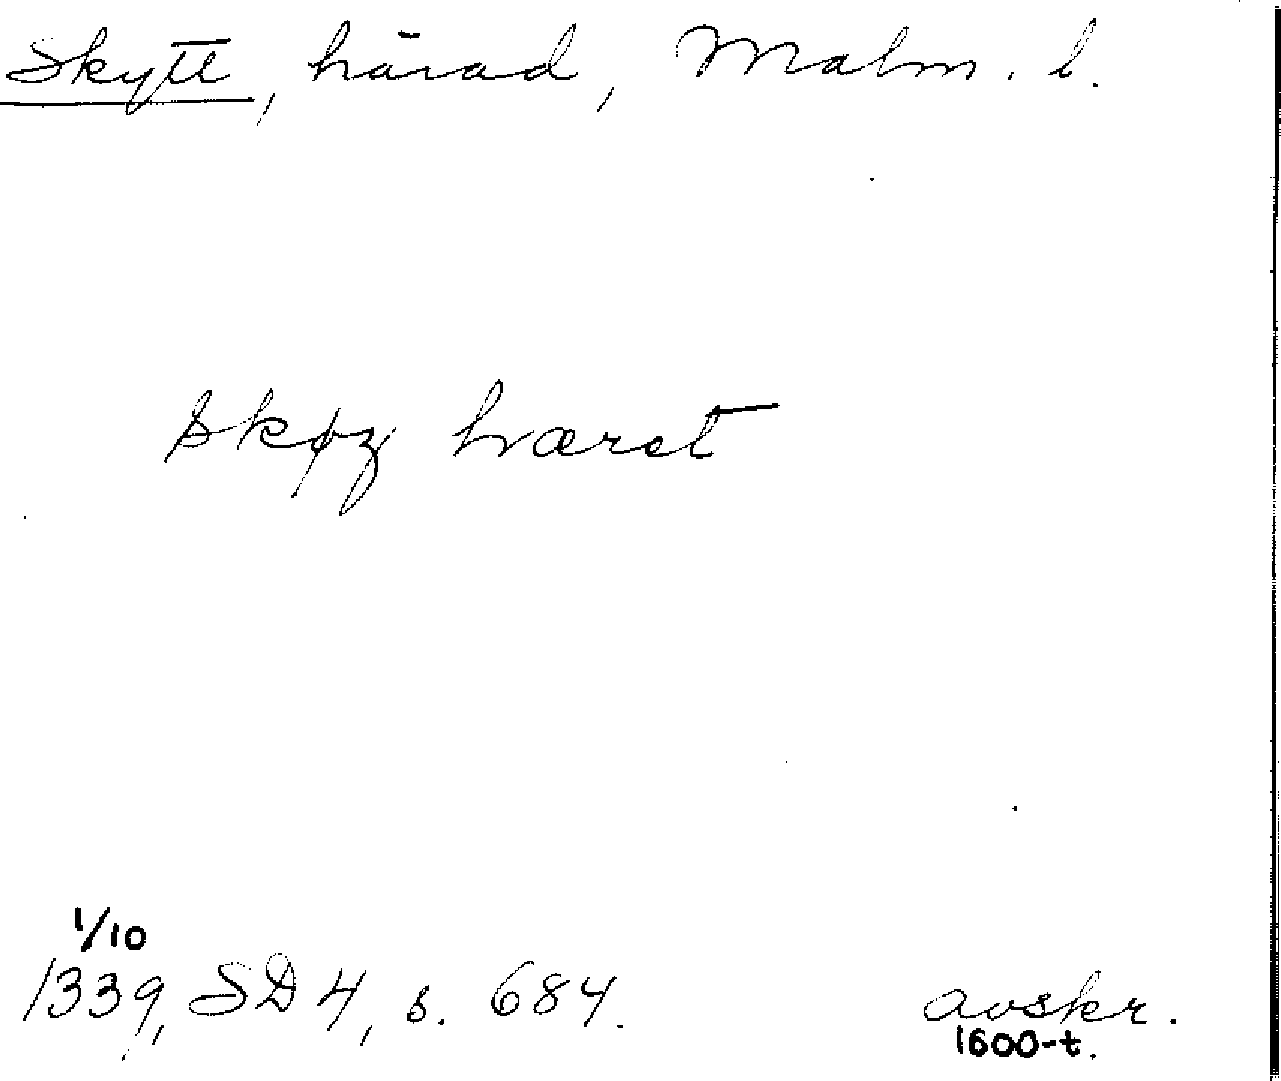 Skytt, härad, Malm. l.
Skøz hæret
1/10
1339, SD 4, s. 684.
avskr.
1600-t.